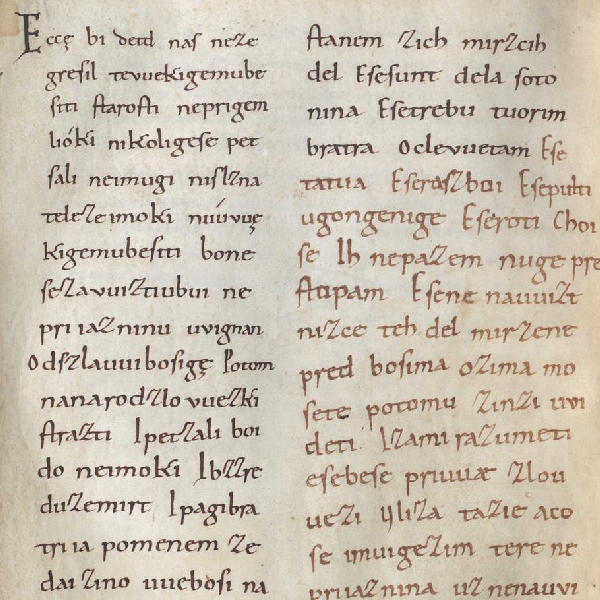 Eccę bi detd naſ neze
greſil tevuekigemube
ſiti ſtaroſti neprigem
lióki nikoligeſe pet
ſali neimugi niſlzna
teleze imoki niúvuę
kigemubeſiti bone
ſezavuiztiubui ne
pri iaz ninu uvignan
Odſzlauui boſigę Potom
nanarodzlovuezki
ſtrazti Ipetzali boi
do neimoki Ibzzre
duzemirt Ipagibra
tri ia pomenem ze
dai zino uueboſi na
ſtanem zich mirzcih
del Eſeſunt dela ſoto
nina Eſetrebu tuorim
bratra Oclevuetam Eſe
tatua Eſeraſzboi Eſepulti
ugongenige Eſeroti Choi
ſe Ih nepazem nuge pre
ſtopam Eſene nauuizt
nizce teh del mirzene
pred boſima ozima mo
ſete potomu zinzi uvi
deti Izami razumeti
eſebeſe priuuæ zlou
uezi Ijliza tazie aco
ſe imuigezim tere ne
priiaznina uznenauvi